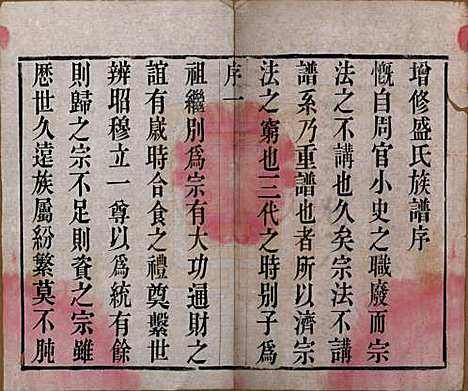 增修盛氏族譜序
慨自周官小史之職廢而宗
法之不講也久矣宗法不講
譜系乃重譜也者所以濟宗
法之窮也三代之時別子為
序一
祖繼別為宗有大功通財之
誼有嵗時合食之禮奠繫世
辨昭穆立一尊以為統有餘
則歸之宗不足則資之宗雖
歷世久遠族屬紛繁莫不肫